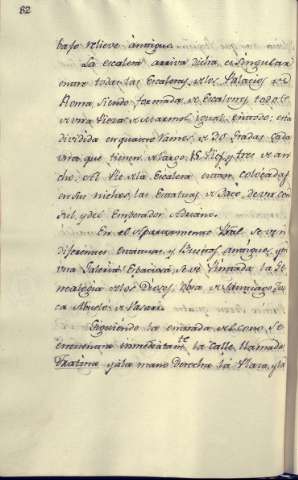 82
baxo relieve antiguo.
La escalera arriva dicha, es singular
entre todas las Escaleras de los Palacios de
Roma, siendo formada de Escalones todos
de una Pieza de Marmol igual, entero; está
dividida en quatro ramos, de 30 Gradas cada
uno, que tienen de largo 15. Pies, y tres de an-
cho; al Pie de la Escalera estan colocadas
en sus nichos, las Estatuas de Baco, de un Con
sul, y del Emperador Adriano.
En el Apartamento se ven
diferentes estatuas, y Bustos antiguos, y en
una Galeria espaciosa se ve Pintada la Ge-
nealogia de los Dioses, obra de
de Vasari.
Siguiendo la entrada del Corso, se
encuentra inmediatam.te la Calle llamada
Fratina y à la mano derecha la Plaza, y la